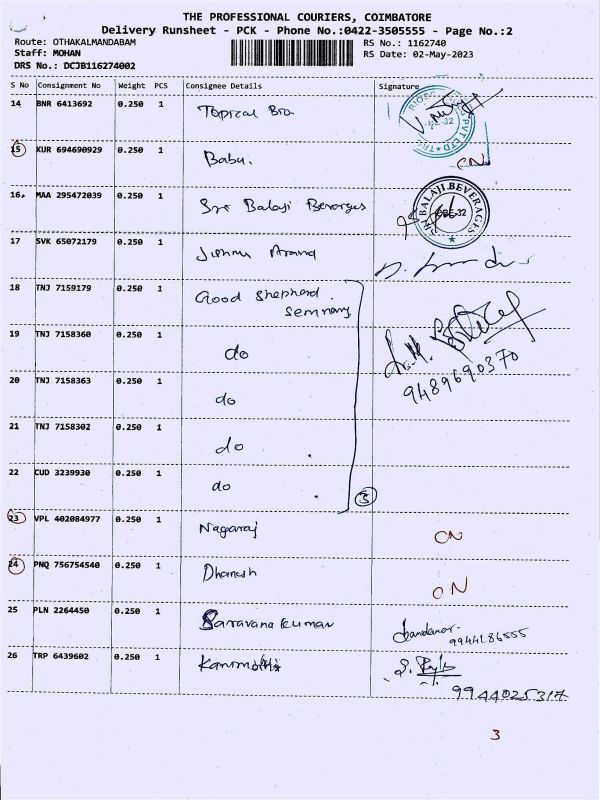 THE PROFESSIONAL COURIERS, COIMBATORE
Delivery Runsheet - PCK - Phone No.:0422-3505555 - Page No.:2
Route: OTHAKALMANDABAM RS No.: 1162740
Staff: MOHAN RS Date: 02-May-2023
DRS No.: DCJB116274002
S No Consignment No Weight PCS Consignee Details Signature
14 BNR 6413692 0.250 1 Topical Bio.
15 KUR 694690929 0.250 1 Babu. CN
16 MAA 295472039 0.250 1 Sri Balaji Beverges
SRI BALAJI BEVERAGES
CBE-32
17 SVK 65072179 0.250 1 Anand
18 TNJ 7159179 0.250 1 Good Shepherd
Seminary
19 TNJ 7158360 0.250 1 do
9489690370
20 TNJ 7158363 0.250 1 do
21 TNJ 7158302 0.250 1 do
22 CUD 3239930 0.250 1 do
5
23 VPL 402084977 0.250 1 Nagaraj CN
24 PNQ 756754540 0.250 1 Dhanesh CN
25 PLN 2264450 0.250 1 Saravana kumar
26 TRP 6439602 0.250 1
9944025317
3